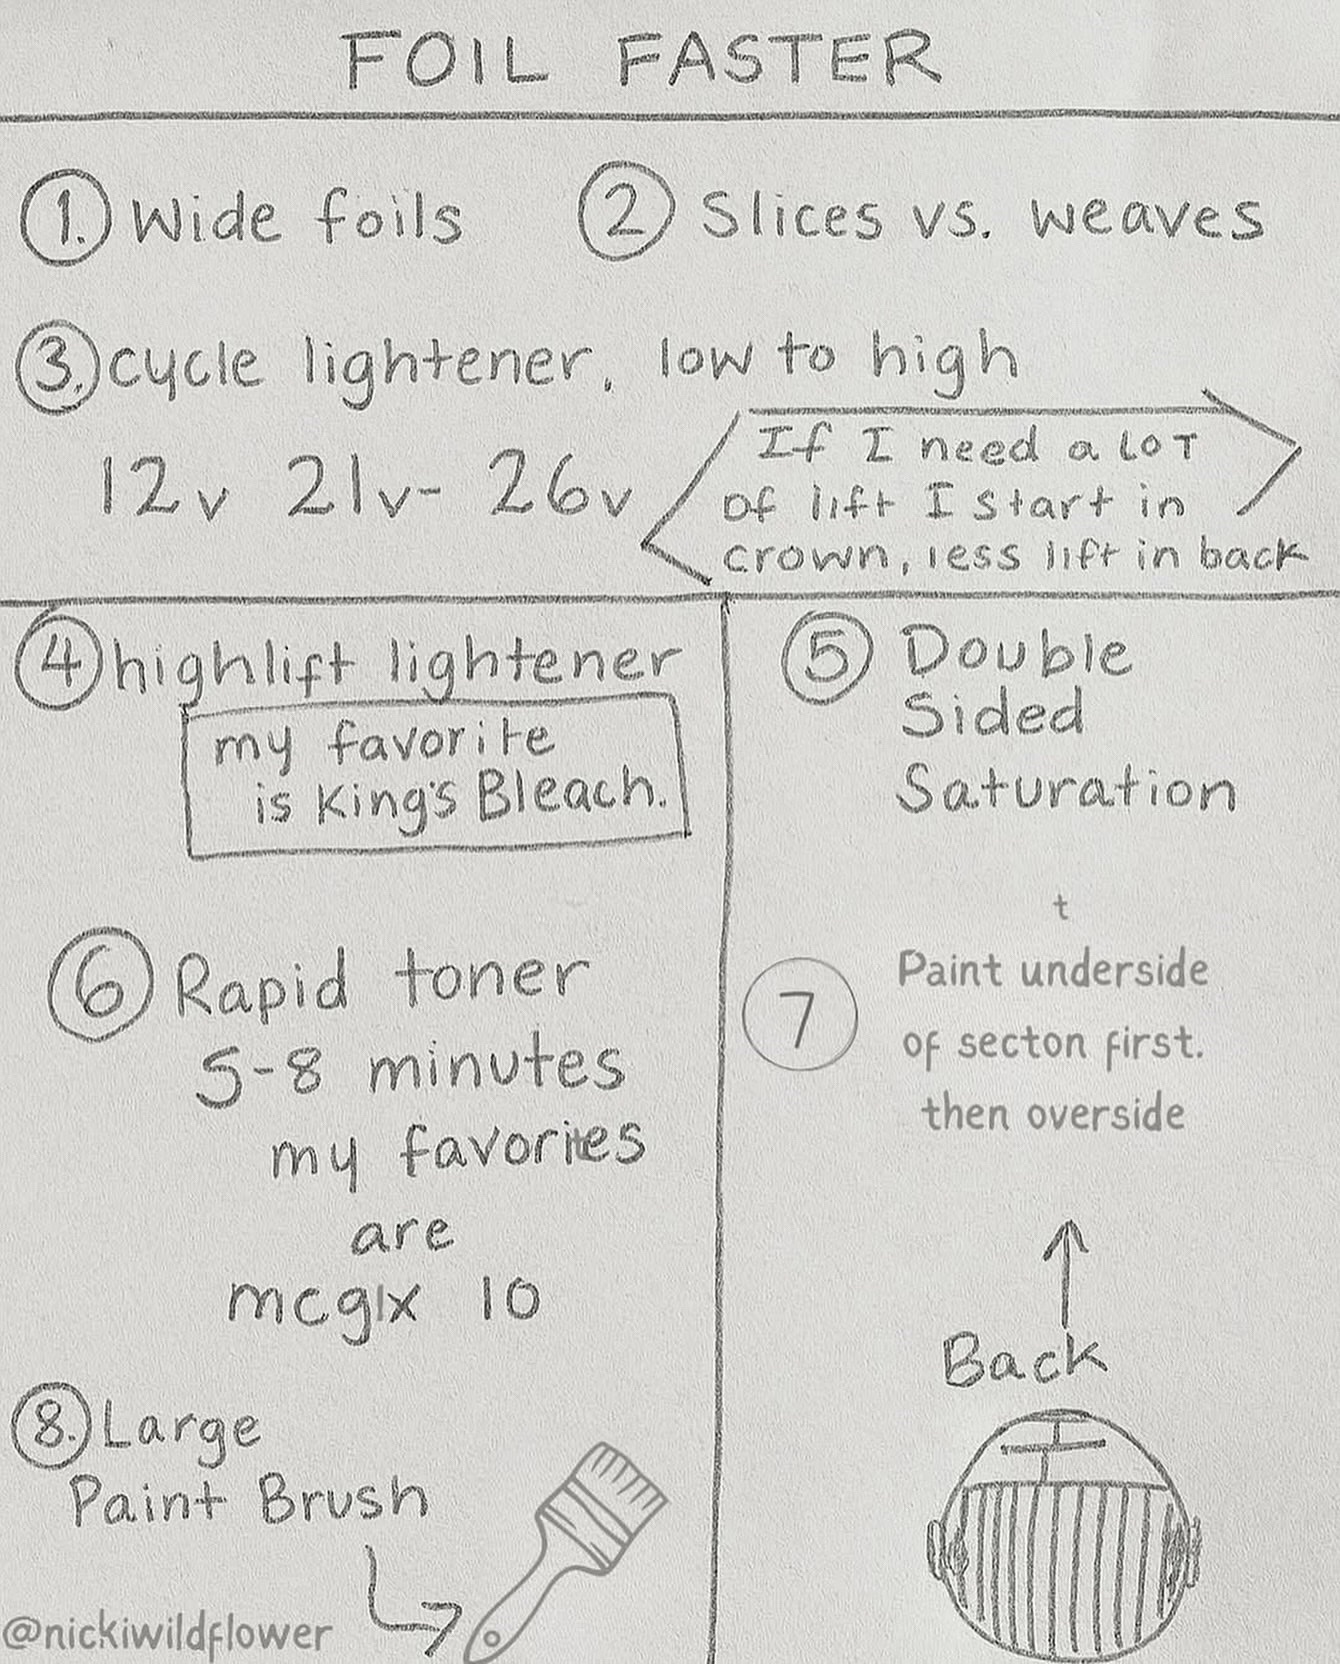 FOIL FASTER
1. Wide foils
2 Slices vs. weaves
3. cycle lightener, low to high
12v 21v- 26v
If I need a LOT
of lift I start in
crown, less lift in back
4 highlift lightener
my favorite
is King's Bleach.
5 Double
Sided
Saturation
6 Rapid toner
5-8 minutes
my favorites
are
mcglx 10
t
7 Paint underside
of secton first.
then overside
8. Large
Paint Brush
Back
@nickiwildflower